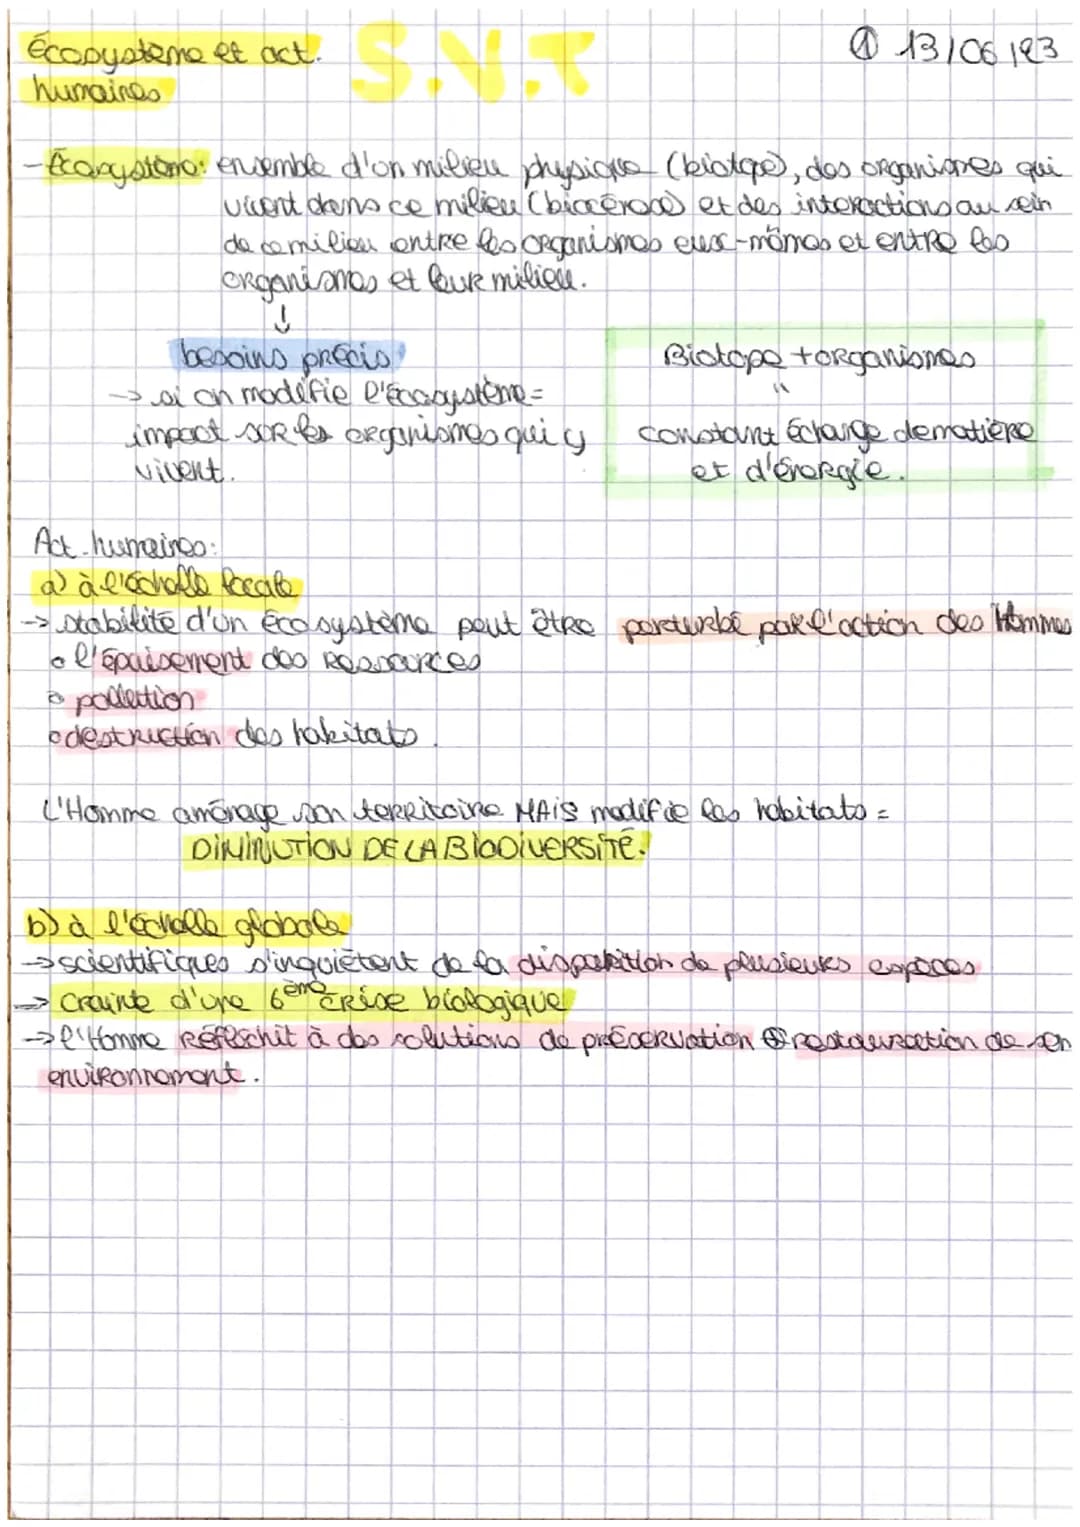 Écosystème et act. S.V.T ① 13/06/23
humaines
- Écosystème: ensemble d'un milieu physique (biotope), des organismes qui
vivent dans ce milieu (biocénose) et des interactions au sein
de ce milieu entre les organismes eux-mêmes et entre les
organismes et leur milieu.
↓
besoins précis
-> si on modifie l'écosystème =
impact sur les organismes qui y
vivent.
Biotope + organismes
"
constant échange de matière
et d'énergie.
Act. humaines:
a) à l'échelle locale
-> stabilité d'un écosystème peut être perturbé par l'action des Hommes
o l'épuisement des ressources
o pollution
o destruction des habitats.
L'Homme aménage son territoire MAIS modifie les habitats =
DIMINUTION DE LA BIODIVERSITÉ.
b) à l'échelle globale
-> scientifiques s'inquiètent de la disparition de plusieurs espèces
-> crainte d'une 6ème crise biologique
-> l'Homme réfléchit à des solutions de préservation ⊕ restauration de son
environnement.